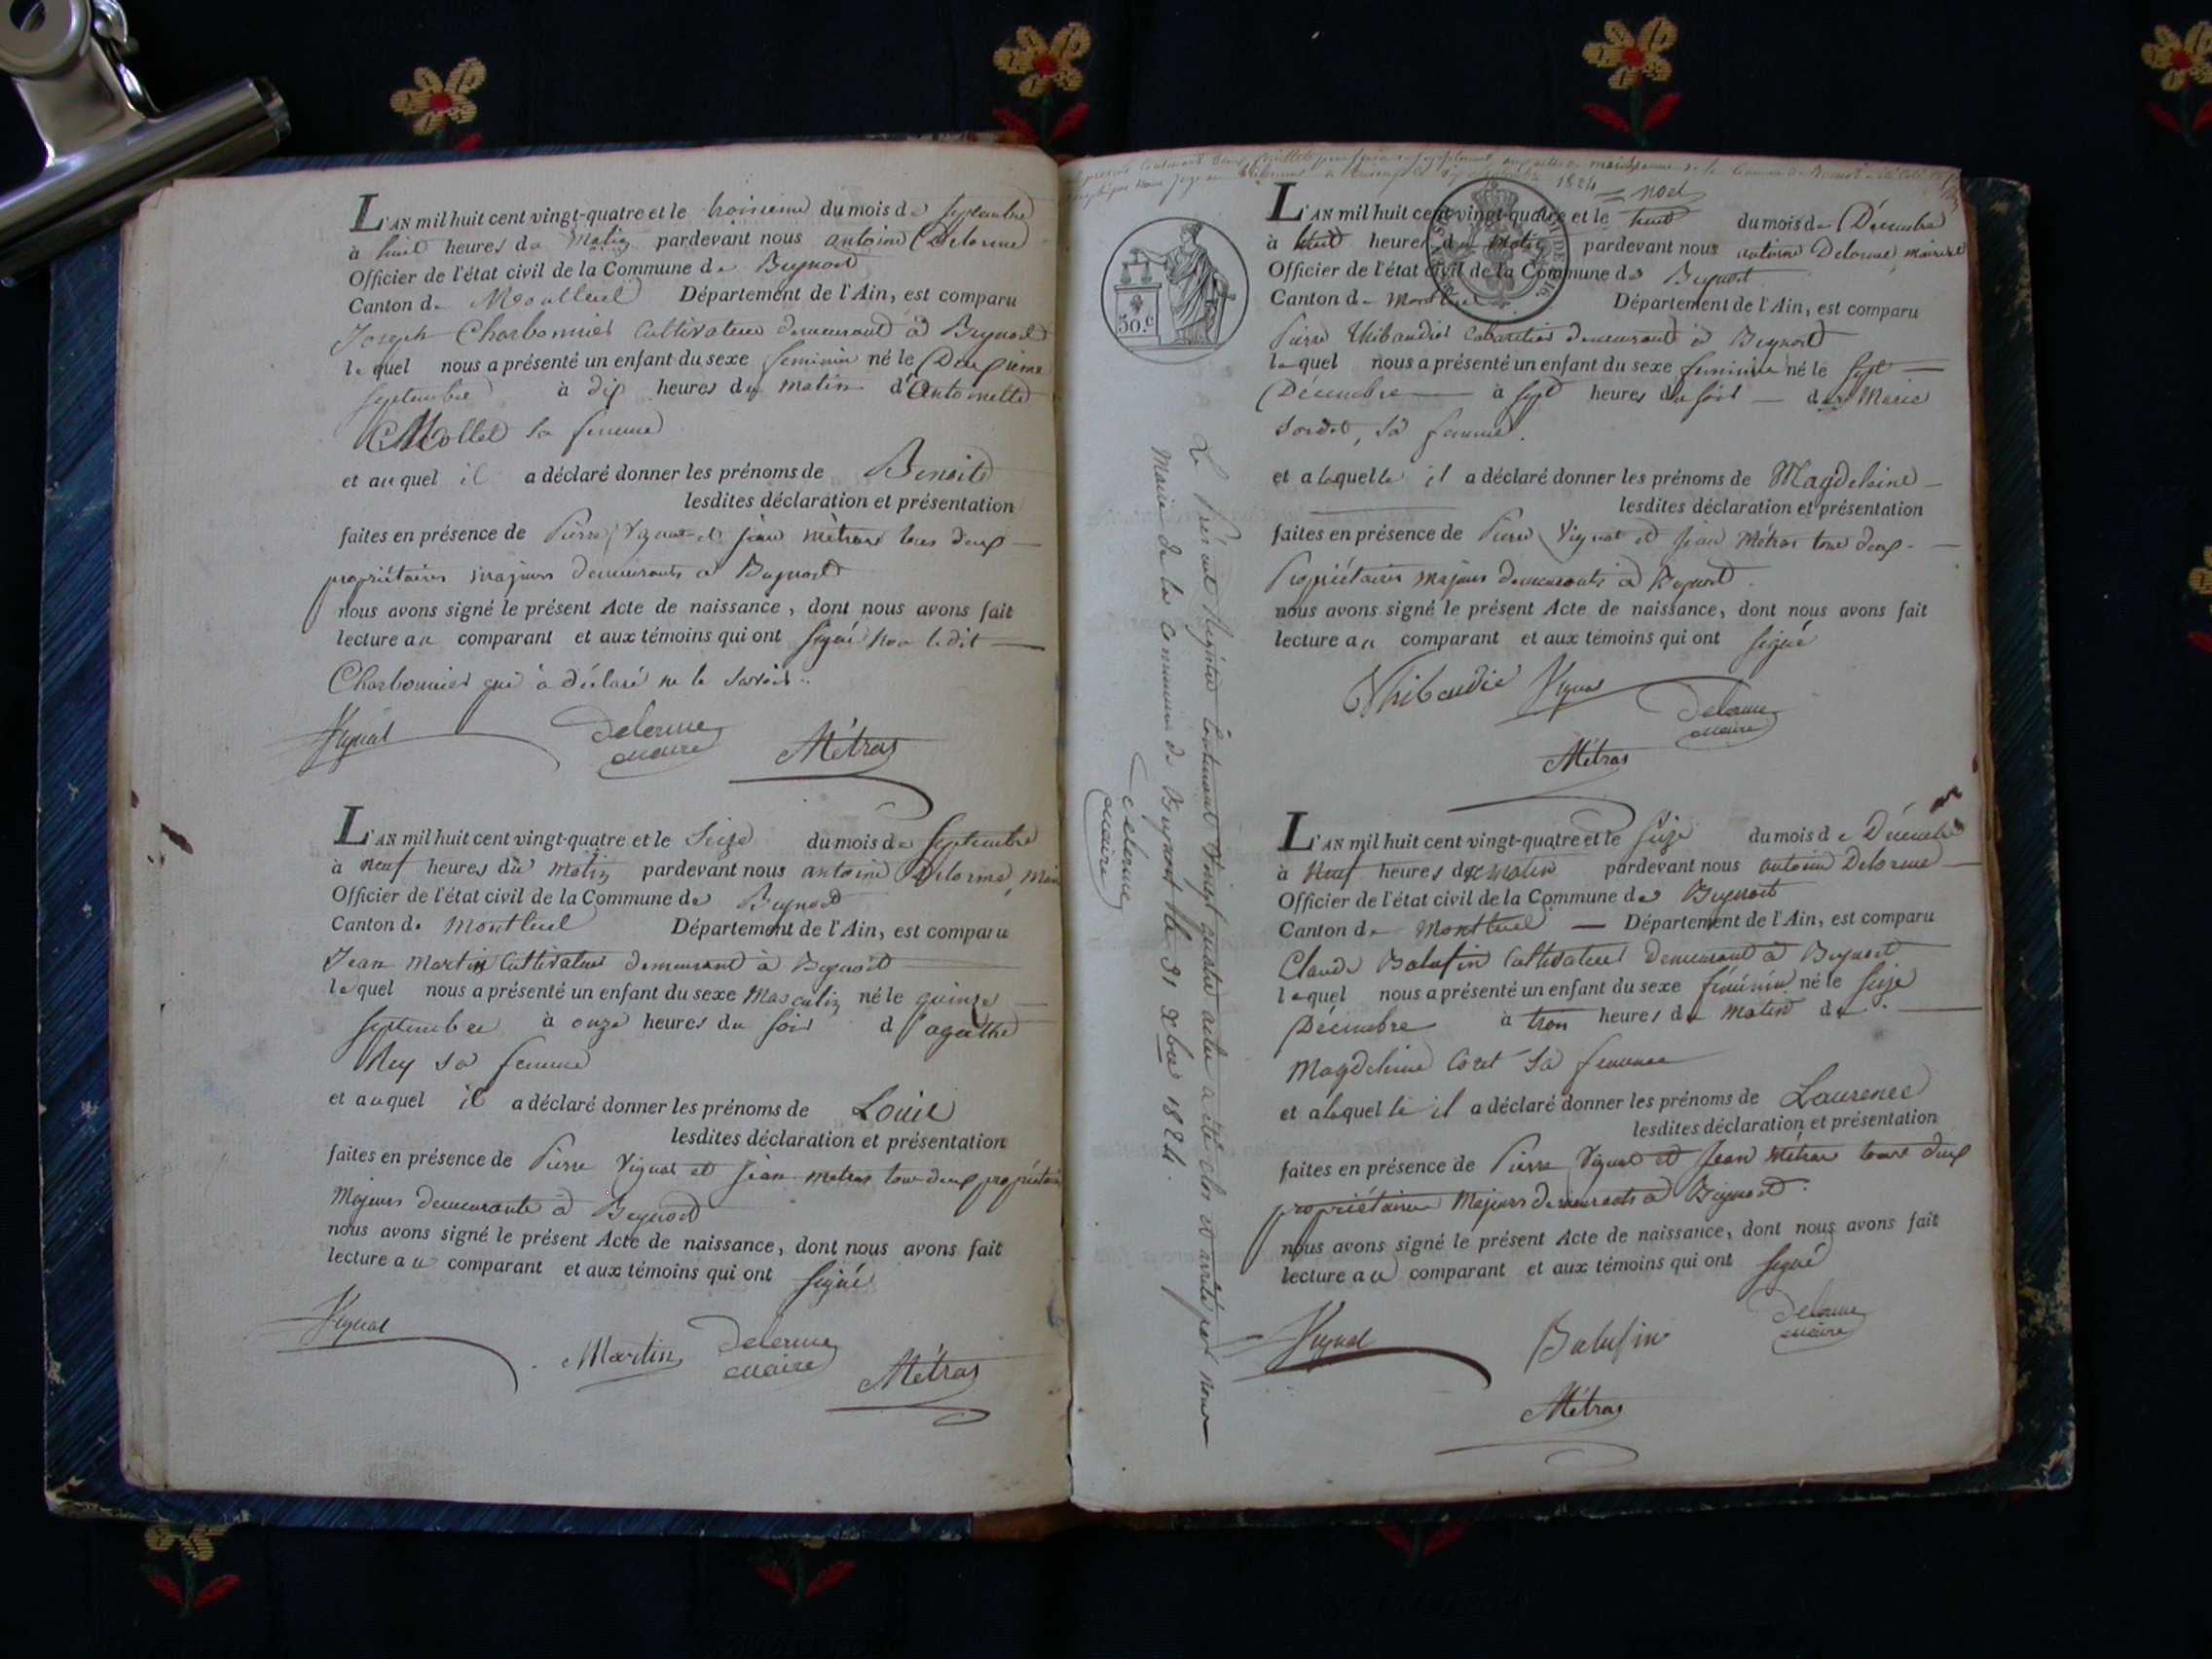 L'AN mil huit cent vingt-quatre et le troisieme du mois de Septembre
à huit heures du Matin pardevant nous antoine Delorme
Officier de l'état civil de la Commune de Beynost
Canton de Montluel Département de l'Ain, est comparu
Joseph Charbonnier Cultivateur demeurant à Beynost
lequel nous a présenté un enfant du sexe feminin né le Deuxieme
Septembre à dix heures du matin d'Antoinette
Mollet sa femme
et auquel il a déclaré donner les prénoms de Benoite
lesdites déclaration et présentation
faites en présence de Pierre Vignat et jean Mètras tous deux
propriétaires majeurs demeurants à Beynost
nous avons signé le présent Acte de naissance, dont nous avons fait
lecture au comparant et aux témoins qui ont signé non ledit
Charbonnier qui à déclaré ne le savoir.
Vignat Delorme maire Métras
L'AN mil huit cent vingt-quatre et le Seize du mois de Septembre
à neuf heures du matin pardevant nous antoine Delorme, Maire
Officier de l'état civil de la Commune de Beynost
Canton de Montluel Département de l'Ain, est comparu
Jean Martin Cultivateur demeurant à Beynost
lequel nous a présenté un enfant du sexe Masculin né le quinze
Septembre à onze heures du soir d'agathe
Rey sa femme
et auquel il a déclaré donner les prénoms de Louis
lesdites déclaration et présentation
faites en présence de Pierre Vignat et Jean metras tous deux propriétaires
Majeurs demeurants à Beynost
nous avons signé le présent Acte de naissance, dont nous avons fait
lecture au comparant et aux témoins qui ont signé
Vignat Martin Delorme maire Métras
1824
noel
50.c
Le Présent Registre Contenant Vingt quatre actes a été clos et arrêté par nous
Maire de la Commune de Beynost le 31 Xbre 1824.
Delorme
maire
L'AN mil huit cent vingt-quatre et le huit du mois de Décembre
à huit heures du Matin pardevant nous antoine Delorme maire
Officier de l'état civil de la Commune de Beynost
Canton de Montluel Département de l'Ain, est comparu
Pierre Thibaudier Cabaretier demeurant à Beynost
lequel nous a présenté un enfant du sexe feminin né le sept
Décembre à sept heures du soir de Marie
Sordet, sa femme.
et a laquelle il a déclaré donner les prénoms de Magdeleine
lesdites déclaration et présentation
faites en présence de Pierre Vignat et Jean Métras tous deux
Propriétaires majeurs demeurants à Beynost.
nous avons signé le présent Acte de naissance, dont nous avons fait
lecture au comparant et aux témoins qui ont signé
Thibaudie Vignat Delorme maire
Métras
L'AN mil huit cent vingt-quatre et le seize du mois de Décembre
à Neuf heures du matin pardevant nous antoine Delorme
Officier de l'état civil de la Commune de Beynost
Canton de Montluel Département de l'Ain, est comparu
Claude Balufin Cultivateur demeurant à Beynost
lequel nous a présenté un enfant du sexe féminin né le seize
Décembre à trois heures du matin de
Magdeleine Coret sa femme
et a laquelle il a déclaré donner les prénoms de Laurence
lesdites déclaration et présentation
faites en présence de Pierre Vignat et Jean Métras tous deux
propriétaires Majeurs demeurants à Beynost.
nous avons signé le présent Acte de naissance, dont nous avons fait
lecture au comparant et aux témoins qui ont signé
Vignat Balufin Delorme maire
Métras